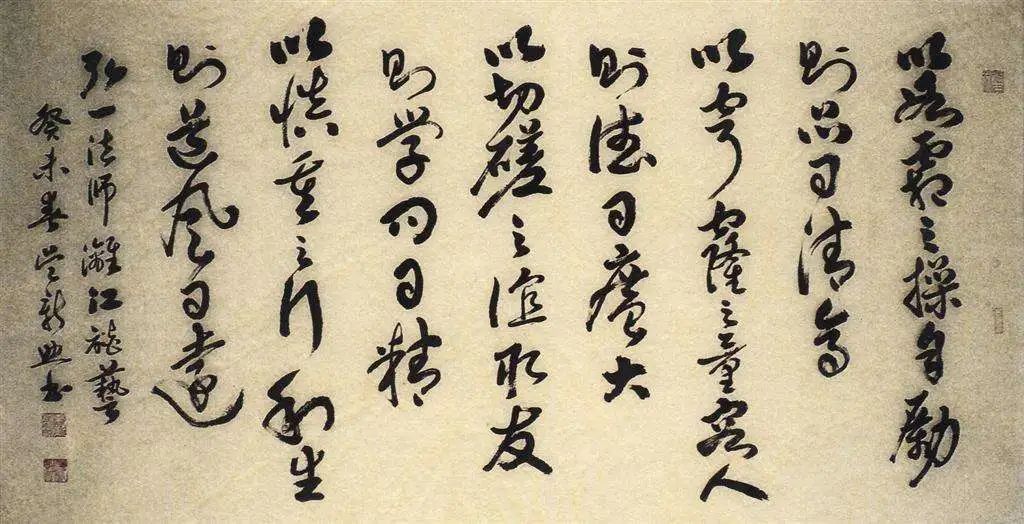 以冰霜之操自勵
则品日清高
以穹窿之量容人
则德日廣大
以切磋之谊取友
则学问日精
以慎重之行利生
则道风日遠
弘一法师
癸未春